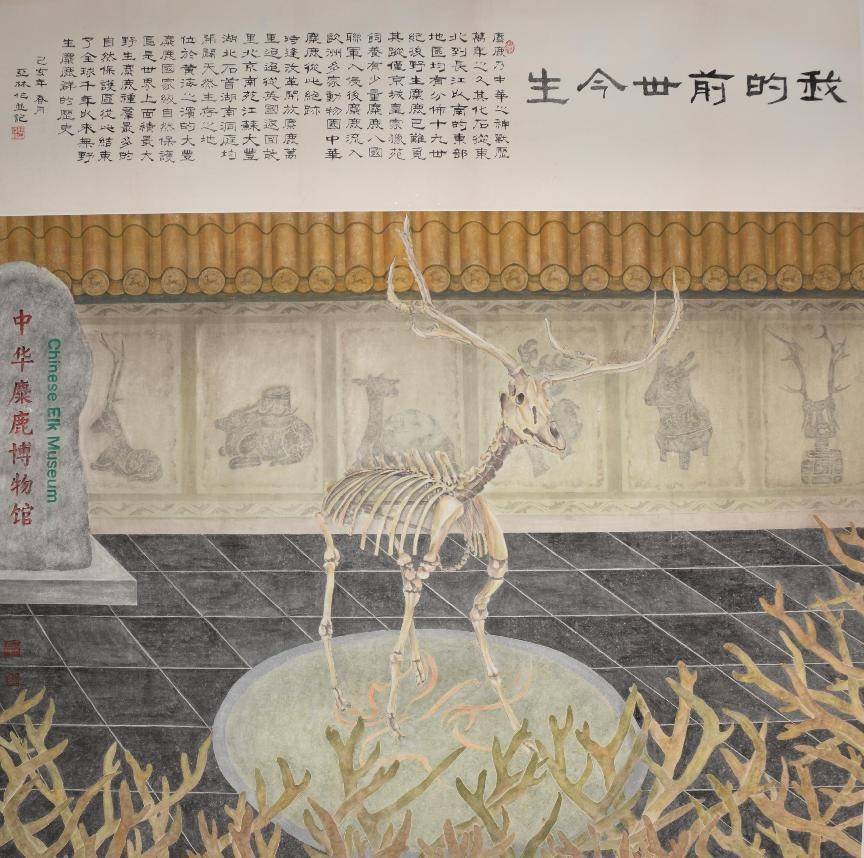 我的前世今生
麋鹿乃中華之神獸歷
萬年之久其化石從東
北到長江以南的東部
地區均有分佈十九世
紀後野生麋鹿已難覓
其蹤僅京城皇家獵苑
飼養有少量麋鹿八國
聯軍入侵後麋鹿流入
歐洲多家動物園中華
麋鹿從此絕跡
逢改革開放麋鹿萬
里迢迢從英國返回故
里北京南苑江蘇大豐
湖北石首湖南洞庭均
開闢天然生存之地
位於黃海之濱的大豐
麋鹿國家級自然保護
區是世界上面積最大
野生麋鹿種羣最多的
自然保護區從此結束
了全球千年以來無野
生麋鹿群的歷史
己亥年春月
亞林作並記
中华麋鹿博物馆
Chinese Elk Museum